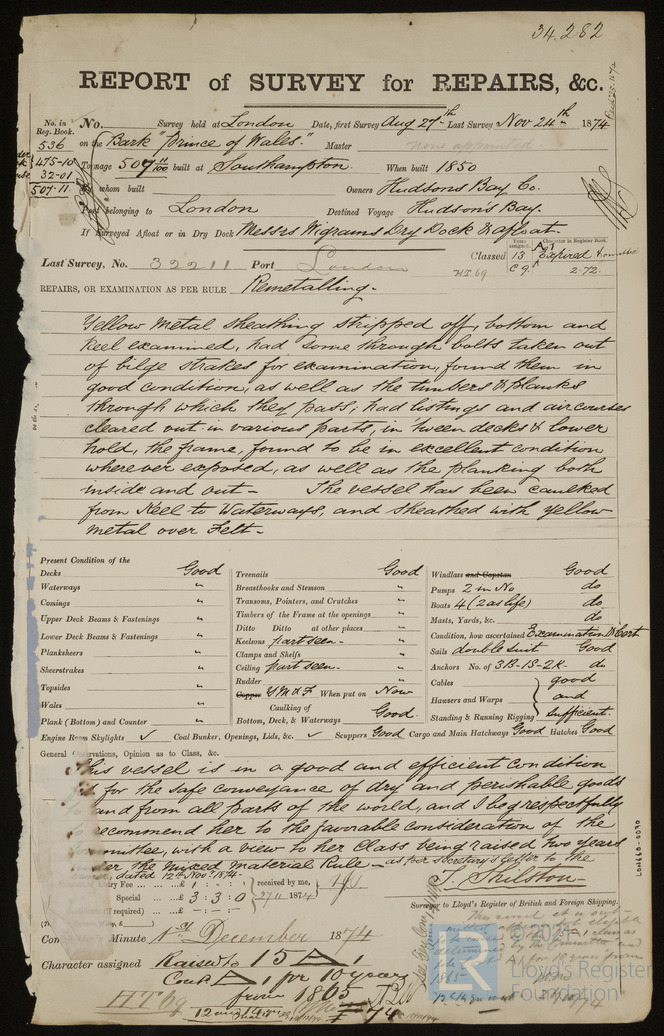 34.282
REPORT of SURVEY for REPAIRS, &c.
No. in Reg. Book. No. Survey held at London Date, first Survey Aug 27th Last Survey Nov 24th 1874
536 on the Bark "Prince of Wales." Master none appointed
475-10 Tonnage 507 11/100 built at Southampton. When built 1850
32-01
507.11 By whom built Owners Hudsons Bay Co.
Port belonging to London Destined Voyage Hudson's Bay.
If Surveyed Afloat or in Dry Dock Messrs Wigrams Dry Dock & afloat.
Years assigned. Character in Register Book.
Last Survey, No. 32211 Port London Classed 13 A1 Expired
C 9. 2.72.
REPAIRS, OR EXAMINATION AS PER RULE Remetalling.
Yellow metal sheathing stripped off, bottom and
keel examined, had some through bolts taken out
of bilge strakes for examination, found them in
good condition, as well as the timbers & planks
through which they pass; had listings and air courses
cleared out in various parts, in tween decks & lower
hold, the frame, found to be in excellent condition
wherever exposed, as well as the planking both
inside and out - The vessel has been caulked
from Keel to Waterways, and sheathed with yellow
metal over Felt -
Present Condition of the
Decks Good
Waterways "
Comings "
Upper Deck Beams & Fastenings "
Lower Deck Beams & Fastenings "
Planksheers "
Sheerstrakes "
Topsides "
Wales "
Plank (Bottom) and Counter "
Treenails Good
Breasthooks and Stemson "
Transoms, Pointers, and Crutches "
Timbers of the Frame at the openings "
Ditto Ditto at other places "
Keelsons part seen - "
Clamps and Shelfs "
Ceiling part seen - "
Rudder "
Copper Y M & F When put on Now
Caulking of Bottom, Deck, & Waterways Good
Windlass and Capstan Good
Pumps 2 in No do
Boats 4 (2 as life) do
Masts, Yards, &c. do
Condition, how ascertained Examination & Cert
Sails double suit Good
Anchors No. of 3B-1S-2K. do
Cables good
Hawsers and Warps and
Standing & Running Rigging Sufficient.
Engine Room Skylights ✓ Coal Bunker, Openings, Lids, &c. ✓ Scuppers Good Cargo and Main Hatchways Good Hatches Good
General Observations, Opinion as to Class, &c.
This vessel is in a good and efficient condition
for the safe conveyance of dry and perishable goods
and from all parts of the world, and I beg respectfully
recommend her to the favorable consideration of the
Committee, with a view to her Class being raised two years
under the mixed material Rule - as per Secretary's letter to the
dated 12th Novr 1874.
Entry Fee £ 1 : - : received by me,
Special £ 3 : 3 : 0 27/11 1874
(if required) £ : :
T. Skilston -
Surveyor to Lloyd's Register of British and Foreign Shipping.
Committee's Minute 1st December 1874
Character assigned Raised to 15 A 1
Cont A 1 for 10 years
from 1865
H T 69
LON660-0070
© 2021
LR
Lloyd's Register
Foundation